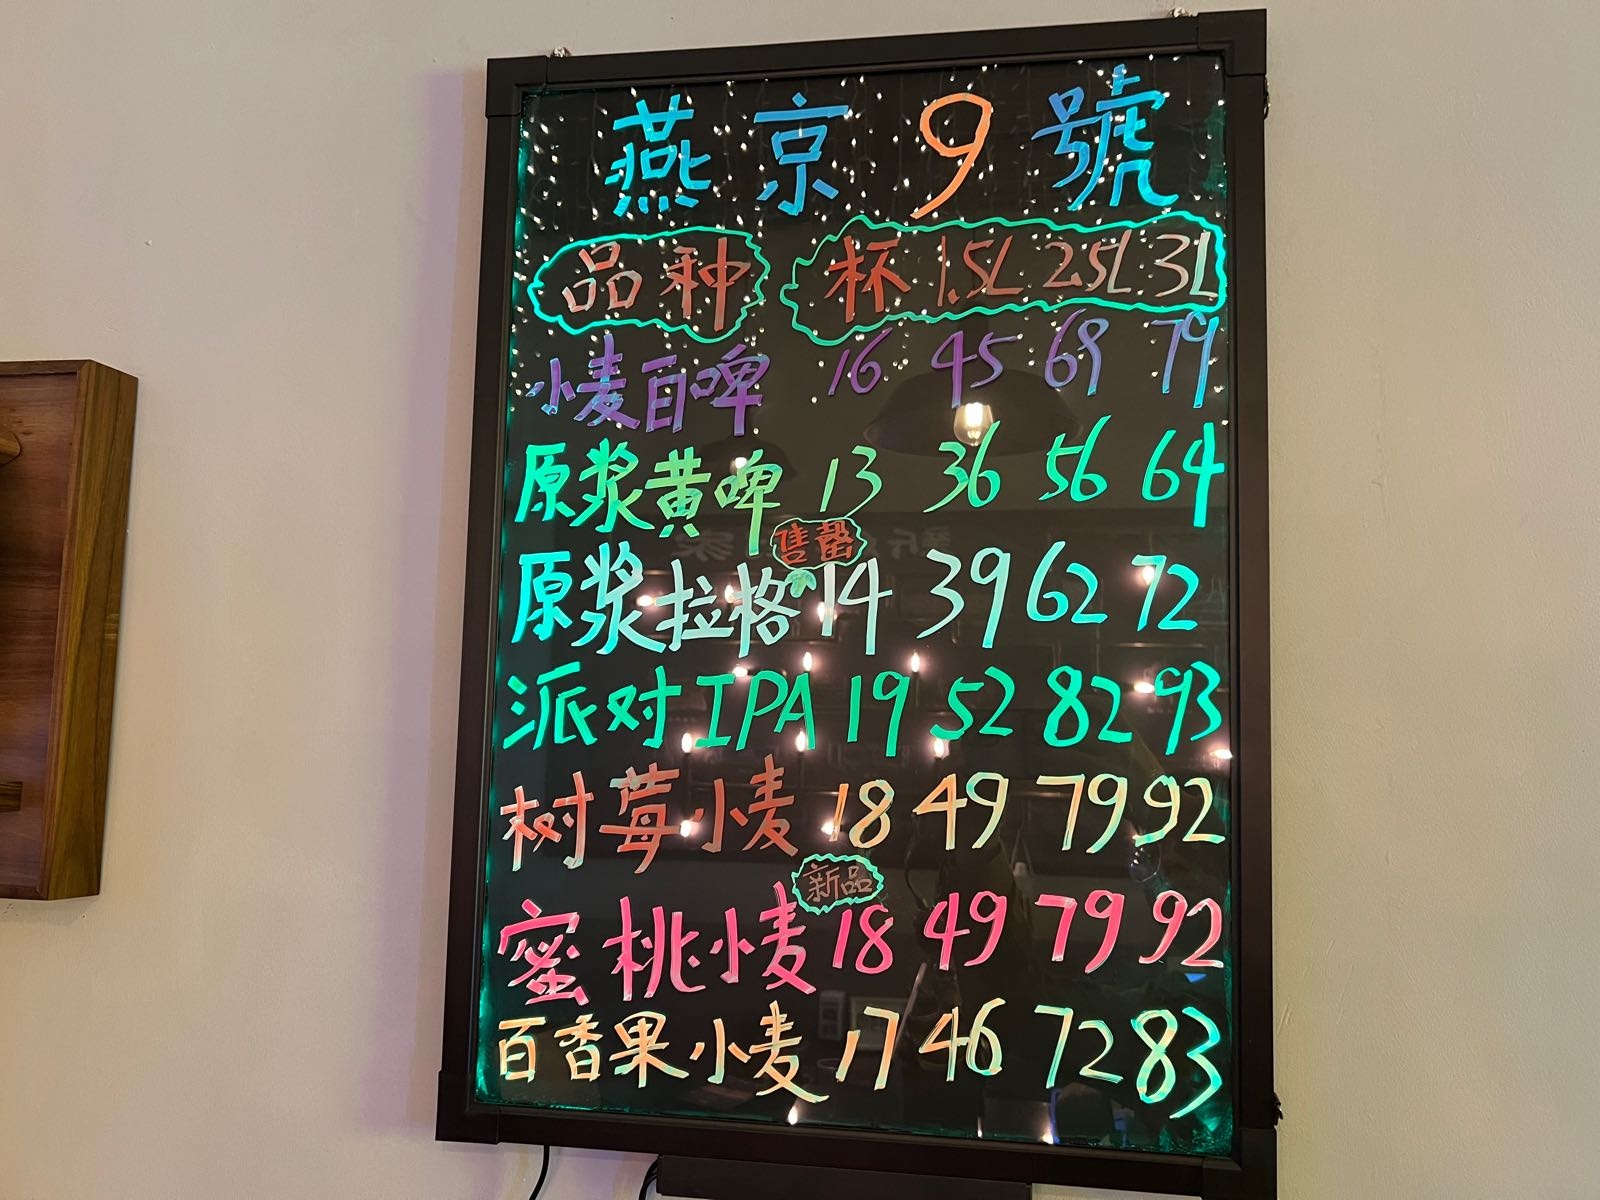 燕京9號
品种 杯 1.5L 2.5L 3L
小麦白啤 16 45 69 79
原浆黄啤 13 36 56 64
售罄
原浆拉格 14 39 62 72
派对IPA 19 52 82 93
树莓小麦 18 49 79 92
新品
蜜桃小麦 18 49 79 92
百香果小麦 17 46 72 83